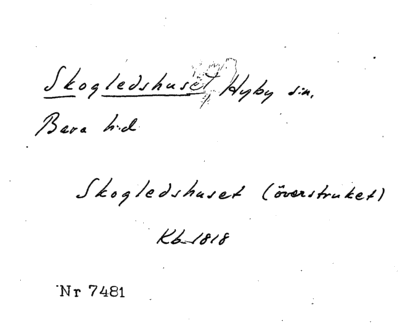 Skogledshuset, Hyby sn.
Bara hd
Skogledshuset (överstruket)
Kb 1818
Nr 7481